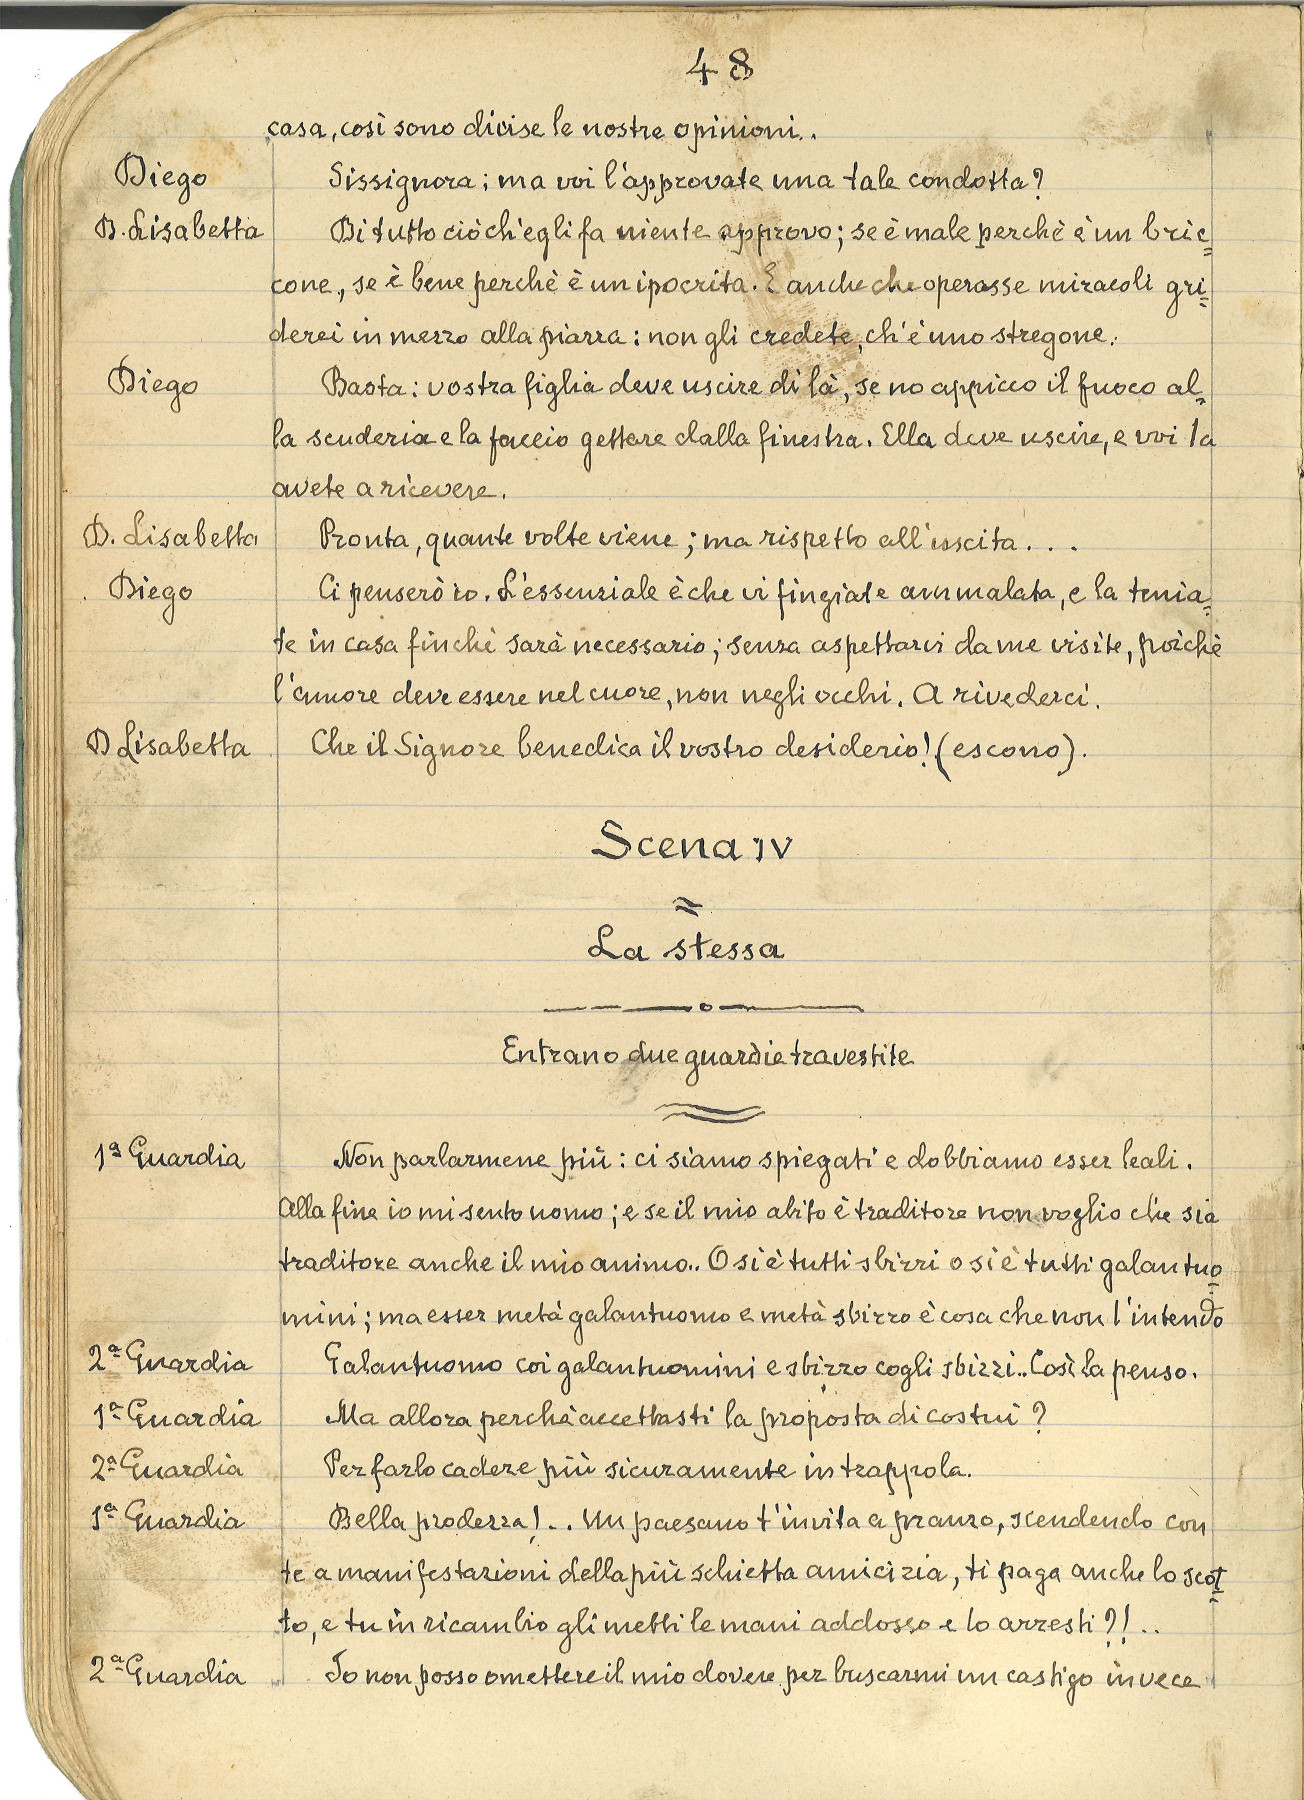 48
casa, così sono divise le nostre opinioni.
Diego Sissignora; ma voi l'approvate una tale condotta?
D. Lisabetta Di tutto ciò ch'egli fa niente approvo; se è male perchè è un bric=
cone, se è bene perchè è un ipocrita. E anche che operasse miracoli gri=
derei in mezzo alla piazza: non gli credete, ch'è uno stregone.
Diego Basta: vostra figlia deve uscire di là, se no appicco il fuoco al=
la scuderia e la faccio gettare dalla finestra. Ella deve uscire, e voi la
avete a ricevere.
D. Lisabetta Pronta, quante volte viene; ma rispetto all'uscita...
Diego Ci penserò io. L'essenziale è che vi fingiate ammalata, e la tenia=
te in casa finchè sarà necessario; senza aspettarvi da me visite, poichè
l'amore deve essere nel cuore, non negli occhi. A rivederci.
D Lisabetta Che il Signore benedica il vostro desiderio! (escono).
Scena IV
La stessa
Entrano due guardie travestite
1ª Guardia Non parlarmene più: ci siamo spiegati e dobbiamo esser leali.
Alla fine io mi sento uomo; e se il mio abito è traditore non voglio che sia
traditore anche il mio animo.. O si è tutti sbirri o si è tutti galantuo=
mini; ma esser metà galantuomo e metà sbirro è cosa che non l'intendo
2ª Guardia Galantuomo coi galantuomini e sbirro cogli sbirri.. Così la penso.
1ª Guardia Ma allora perchè accettasti la proposta di costui?
2ª Guardia Per farlo cadere più sicuramente in trappola.
1ª Guardia Bella prodezza!.. Un paesano t'invita a pranzo, scendendo con
te a manifestazioni della più schietta amicizia, ti paga anche lo scot=
to, e tu in ricambio gli metti le mani addosso e lo arresti?!..
2ª Guardia Io non posso omettere il mio dovere per buscarmi un castigo invece